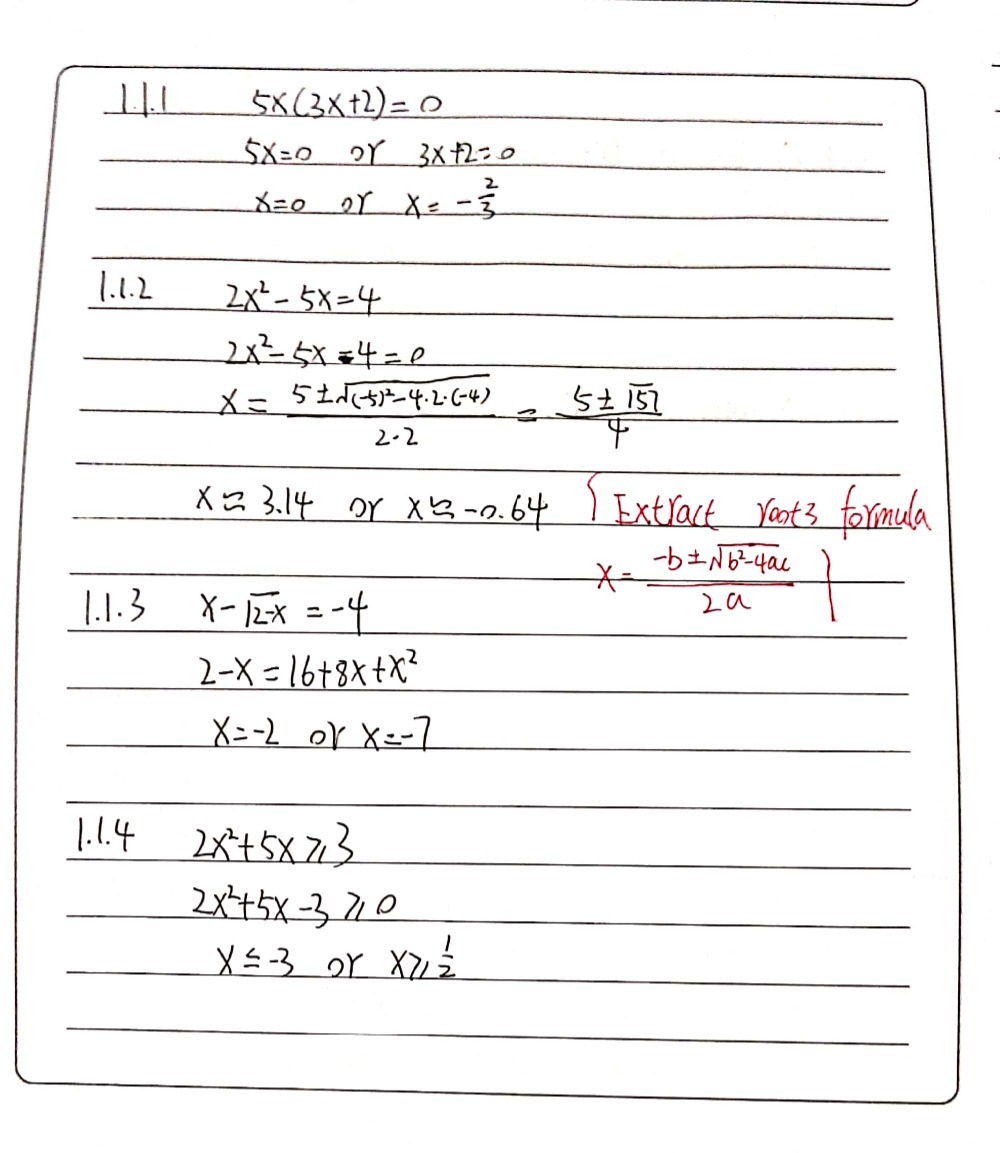 1.1.1 5x(3x+2)=0
5x=0 or 3x+2=0
x=0 or x=-2/3
1.1.2 2x²-5x=4
2x²-5x-4=0
x= (5±√((-5)²-4·2·(-4)))/(2·2) = (5±√57)/4
x≈3.14 or x≈-0.64
Extract roots formula
x= (-b±√(b²-4ac))/(2a)
1.1.3 x-√(2-x) =-4
2-x=16+8x+x²
x=-2 or x=-7
1.1.4 2x²+5x⩾3
2x²+5x-3⩾0
x≤-3 or x⩾1/2